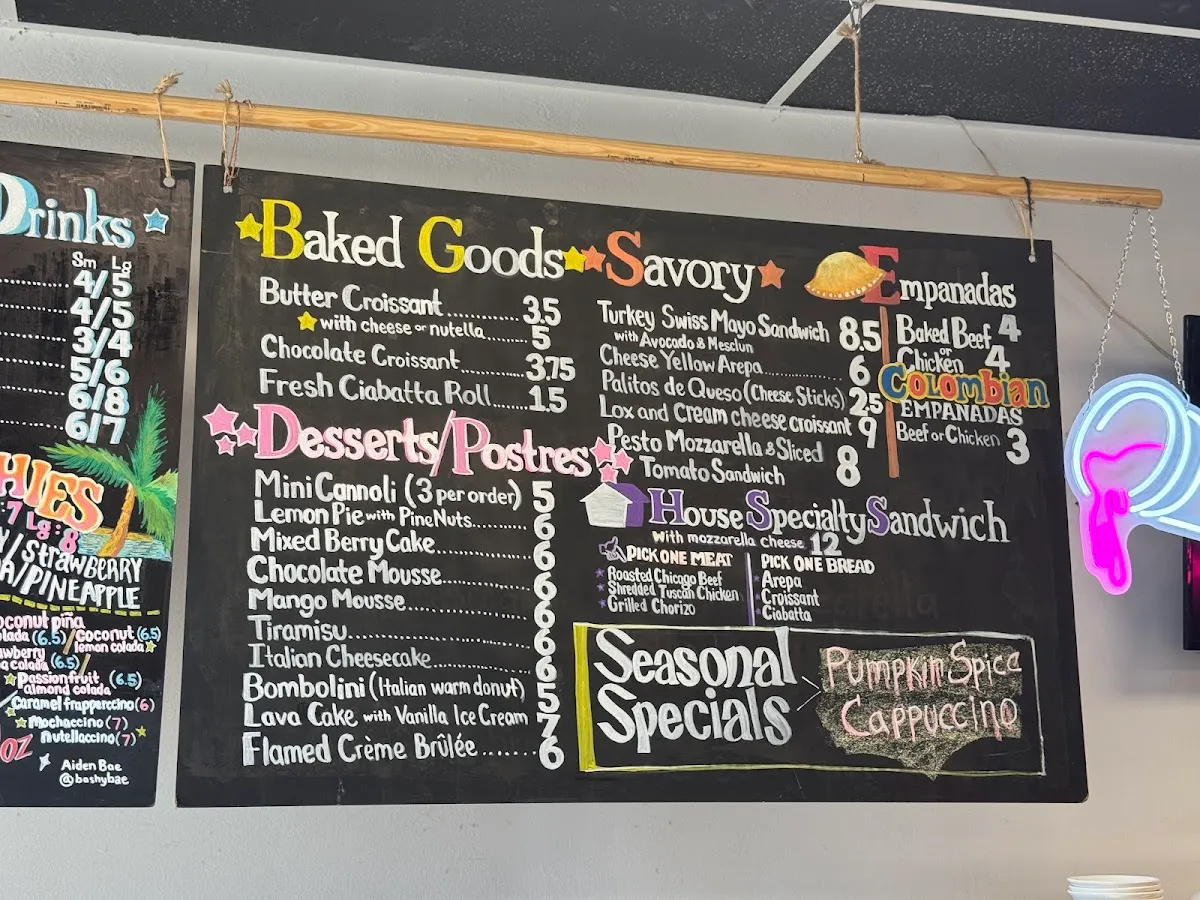 Drinks
Sm Lg
4/5
4/5
3/4
5/6
6/8
6/7
HIES
:7 Lg:8
/Strawberry
A/PINEAPPLE
coconut piña
colada (6.5)/coconut (6.5)
lemon colada
colada (6.5)/
Passion fruit (6.5)
almond colada
Caramel frapperccino (6)
Mochaccino (7)
Nutellaccino (7)
OZ
Aiden Bae
@bashybae
Baked Goods
Butter Croissant.......... 3.5
with cheese or nutella...... 5
Chocolate Croissant....... 3.75
Fresh Ciabatta Roll...... 1.5
Desserts/Postres
Mini Cannoli (3 per order) 5
Lemon Pie with Pine Nuts......... 6
Mixed Berry Cake............ 6
Chocolate Mousse............ 6
Mango Mousse................ 6
Tiramisu..................... 6
Italian Cheesecake........... 6
Bombolini (Italian warm donut) 5
Lava Cake with Vanilla Ice Cream 7
Flamed Crème Brûlée....... 6
Savory
Turkey Swiss Mayo Sandwich 8.5
with Avocado & Mesclun
Cheese Yellow Arepa........... 6
Palitos de Queso (Cheese Sticks) 2.5
Lox and Cream cheese croissant 9
Pesto Mozzarella & Sliced
Tomato Sandwich 8
Empanadas
Baked Beef 4
or
Chicken 4
Colombian
EMPANADAS
Beef or Chicken 3
House Specialty Sandwich
with mozzarella cheese 12
PICK ONE MEAT
Roasted Chicago Beef
Shredded Tuscan Chicken
Grilled Chorizo
PICK ONE BREAD
Arepa
Croissant
Ciabatta
Seasonal
Specials
Pumpkin Spice
Cappuccino